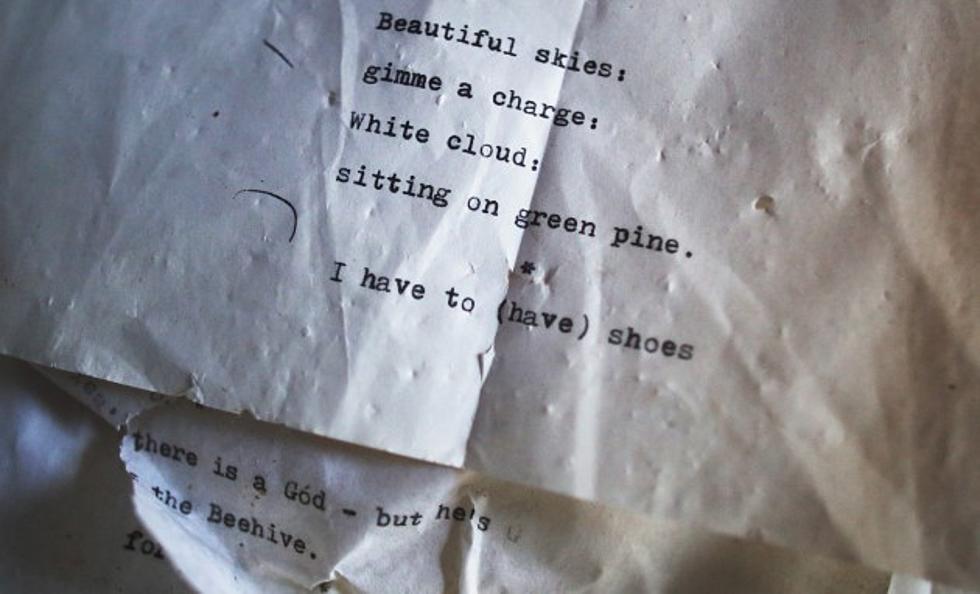 Beautiful skies:
gimme a charge:
White cloud:
sitting on green pine.
*
I have to (have) shoes
there is a Gód - but he's
the Beehive.